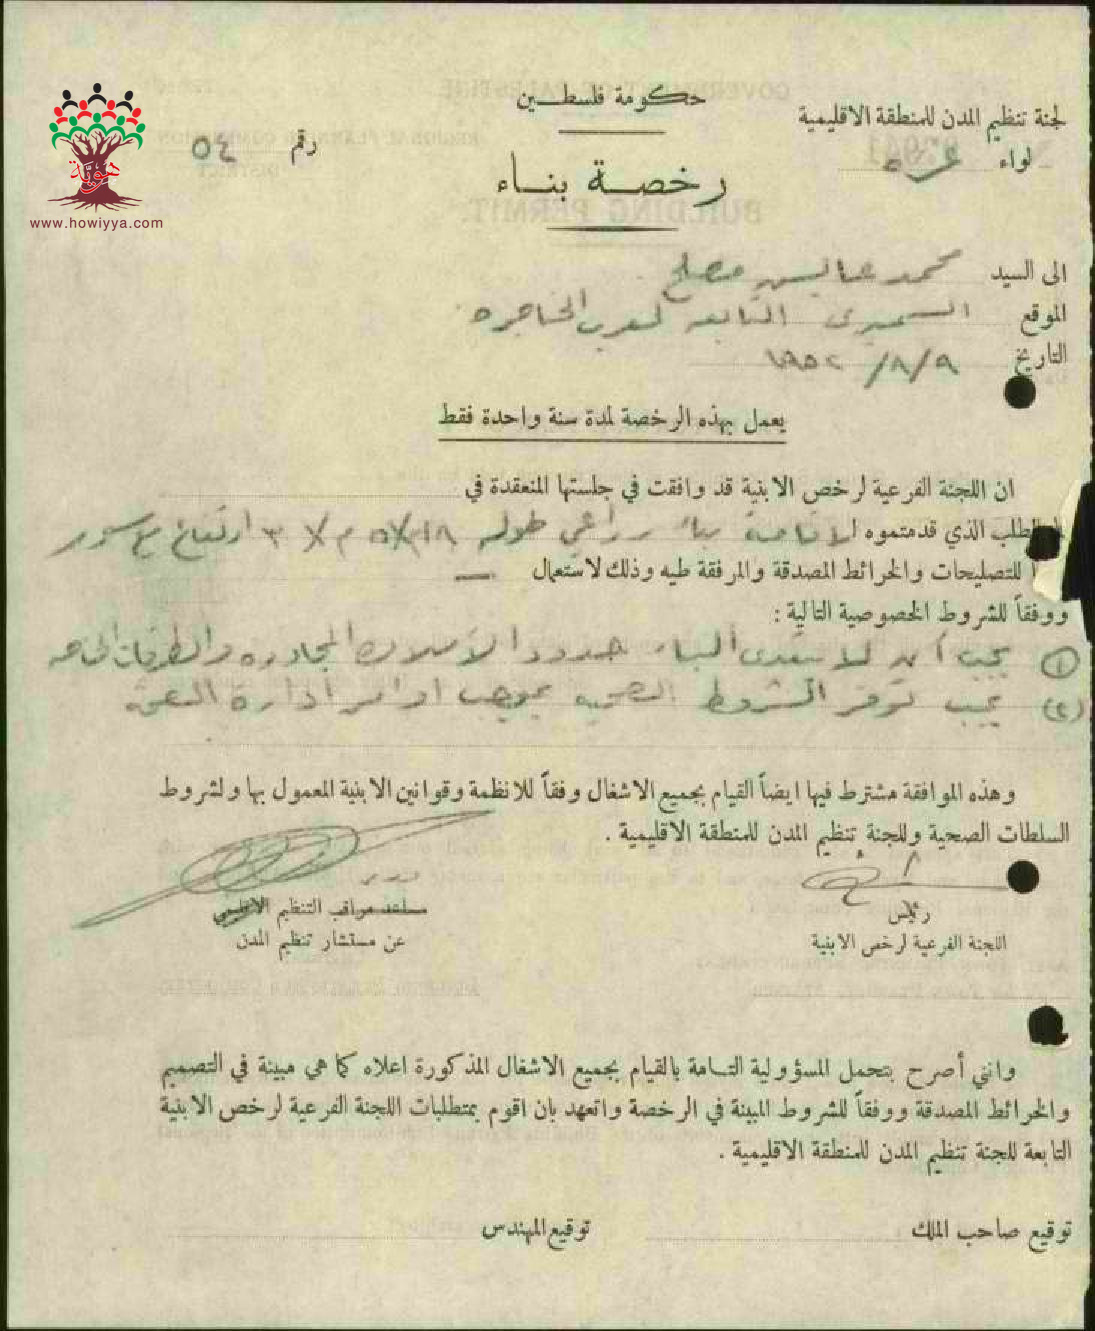 حكومة فلسطين
لجنة تنظيم المدن للمنطقة الاقليمية
لواء غزه
رقم ٥٤
رخصة بناء
هوية
www.howiyya.com
الى السيد محمد عايش مصلح
الموقع السميري التابعه لعرب الحناجره
التاريخ ٩/٨/١٩٥٢
يعمل بهذه الرخصة لمدة سنة واحدة فقط
ان اللجنة الفرعية لرخص الابنية قد وافقت في جلستها المنعقدة في
الطلب الذي قدمتموه لاقامة بناء زراعي طوله ارتفاع مع سور
للتصليحات والخرائط المصدقة والمرفقة طيه وذلك لاستعمال —
ووفقاً للشروط الخصوصية التالية :
(١) يجب أن لا يتعدى البناء حدود الأملاك المجاوره والطرقات
(٢) يجب توفر الشروط الصحيه بموجب اوامر ادارة الصحة
وهذه الموافقة مشترط فيها ايضاً القيام بجميع الاشغال وفقاً للانظمة وقوانين الابنية المعمول بها ولشروط
السلطات الصحية وللجنة تنظيم المدن للمنطقة الاقليمية .
رئيس
اللجنة الفرعية لرخص الابنية
مساعد مراقب التنظيم الاقليمي
عن مستشار تنظيم المدن
وانني أصرح بتحمل المسؤولية التامة بالقيام بجميع الاشغال المذكورة اعلاه كما هي مبينة في التصميم
والخرائط المصدقة ووفقاً للشروط المبينة في الرخصة واتعهد بان اقوم بمتطلبات اللجنة الفرعية لرخص الابنية
التابعة للجنة تنظيم المدن للمنطقة الاقليمية .
توقيع صاحب الملك
توقيع المهندس